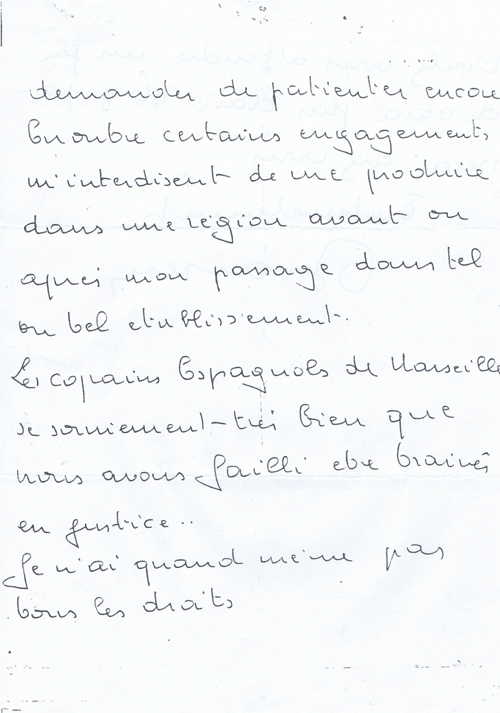 demander de patienter encore
En outre certains engagements
m'interdisent de me produire
dans une région avant ou
après mon passage dans tel
ou tel etablissement.
Les copains Espagnols de Marseille
se souviennent-très bien que
nous avons failli etre trainés
en justice..
Je n'ai quand même pas
tous les droits